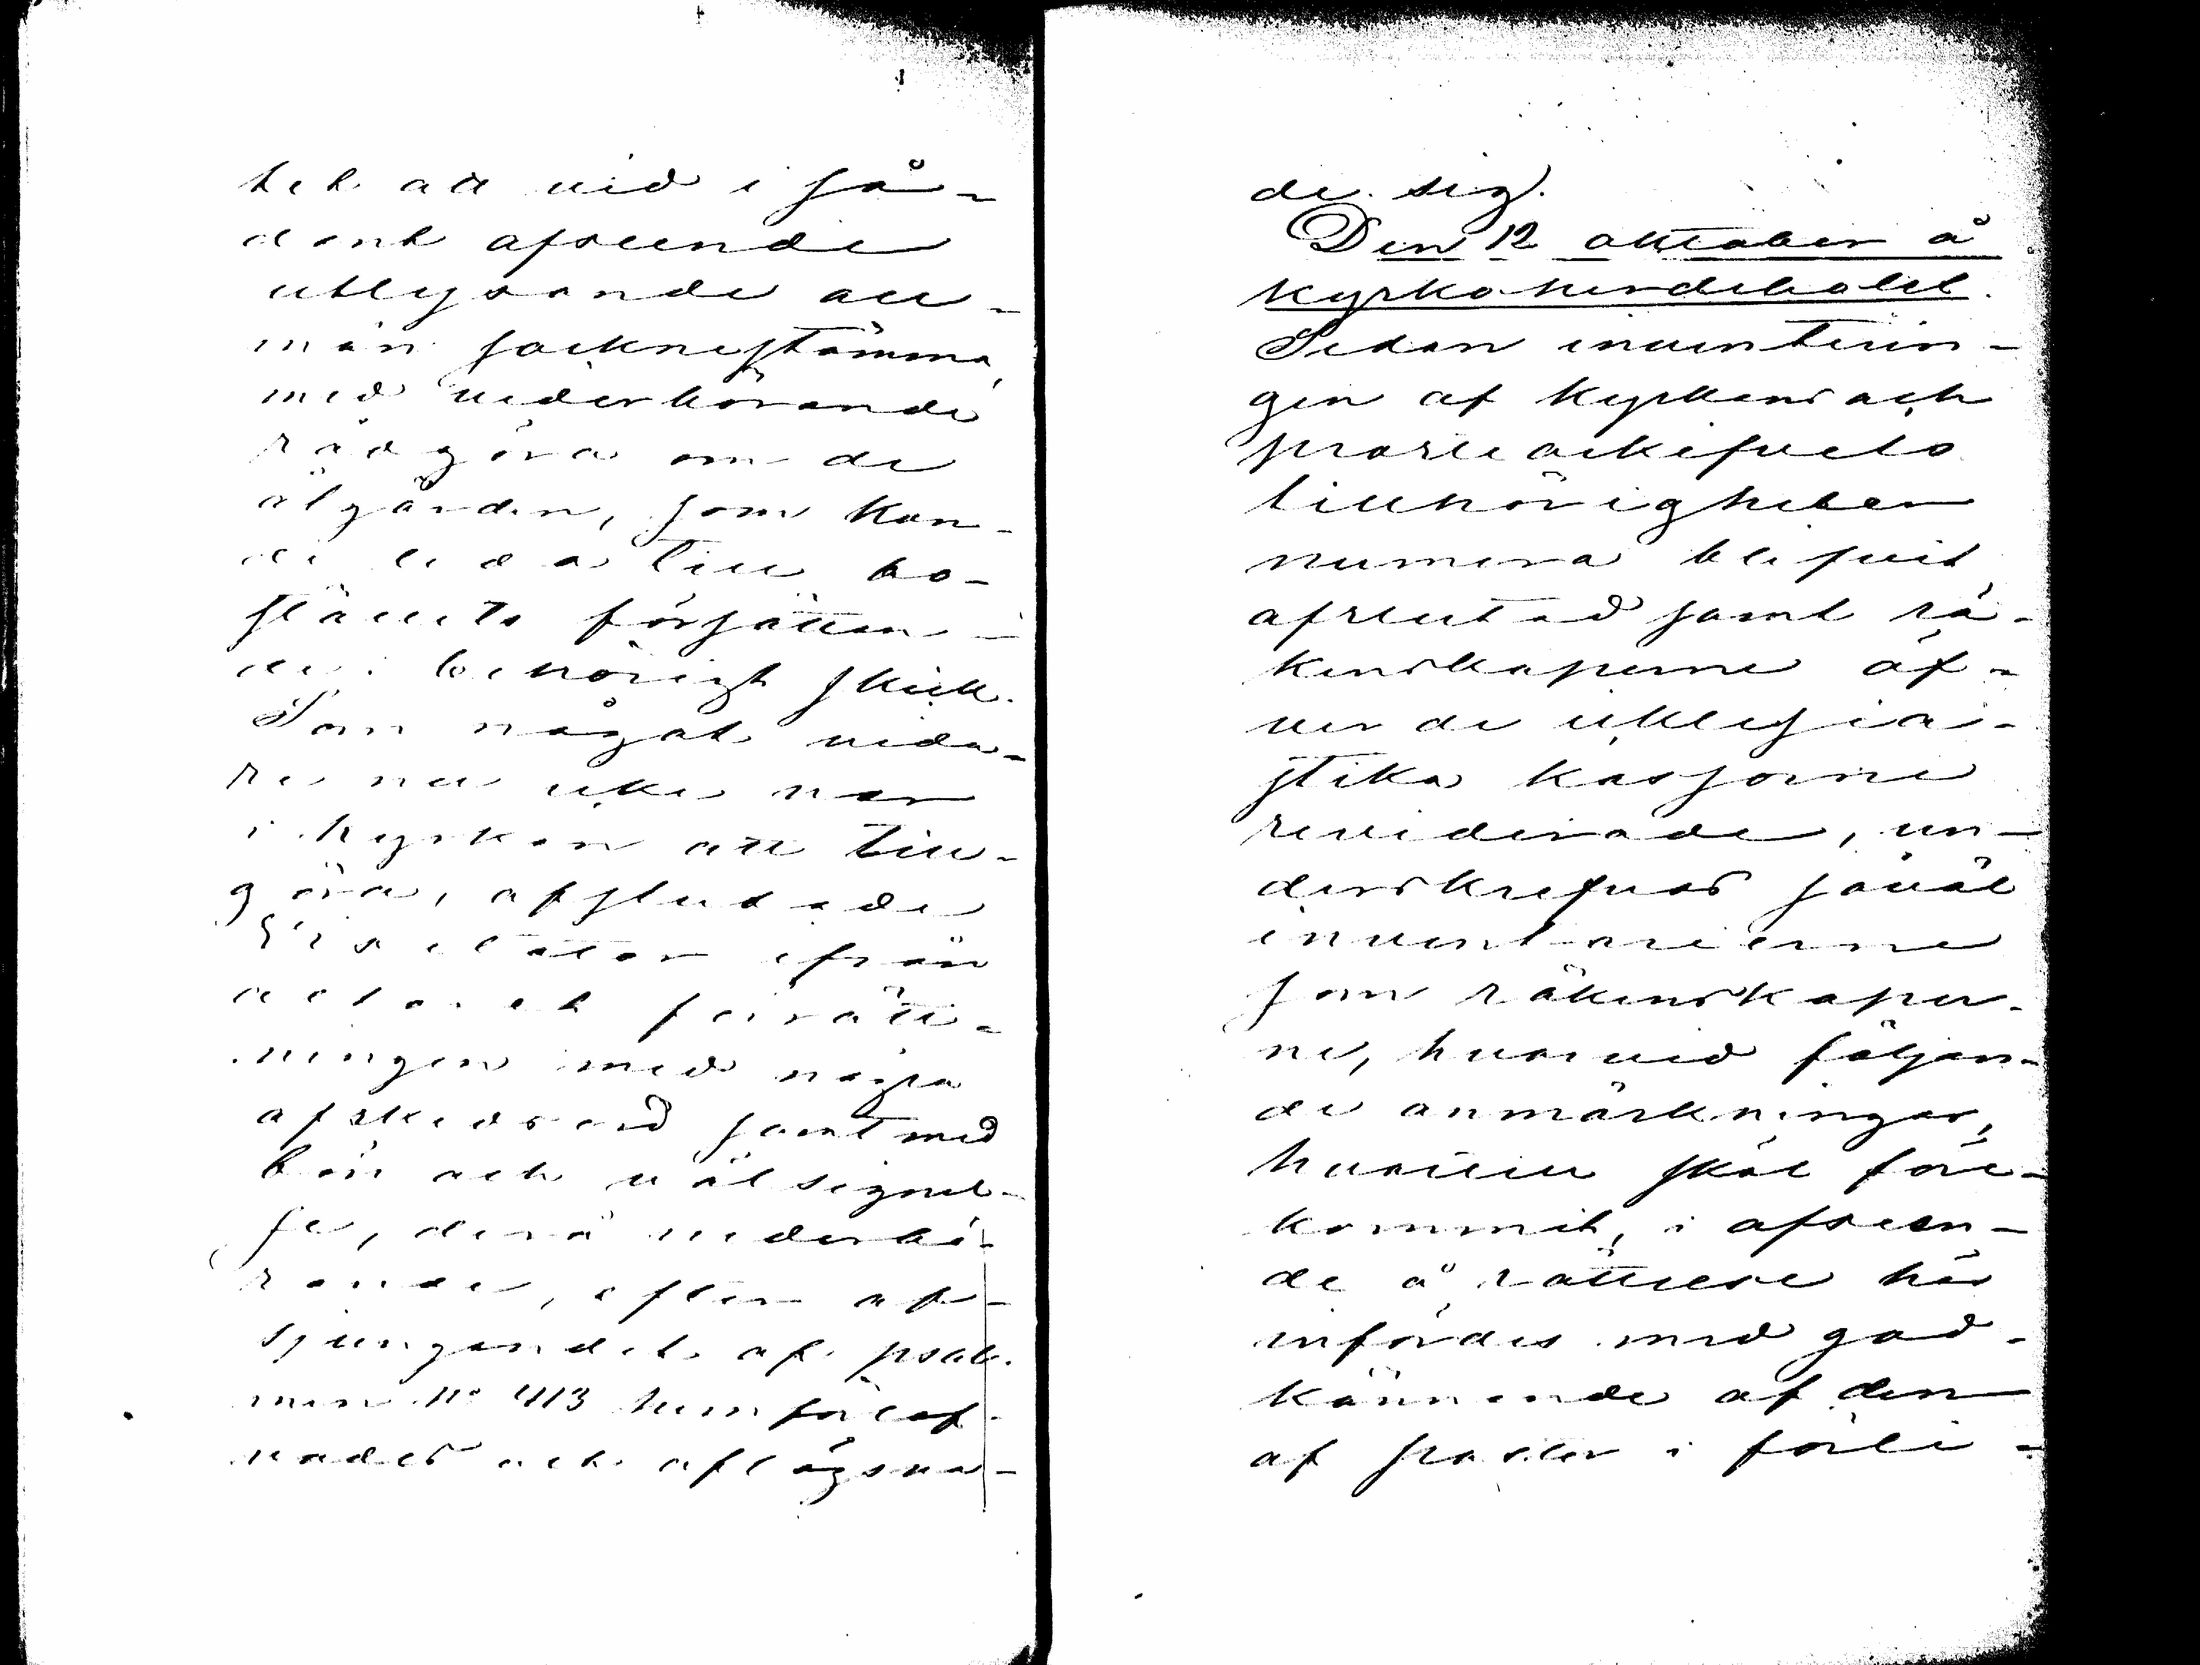 tet att vid i så-
dant afseende
utlysande all-
män socknestämma
med vederbörande
rådgöra om de
åtgärder, som kun-
de leda till bo-
ställets försättan-
de i behörigt skick.
Som något vida-
re nu icke var
i kyrkan att till-
göra, afslutade
Visitator ifrån
altaret förrätt-
ningen med några
afskedsord samt med
bön och välsignel-
se, derå vederbö-
rande, efter af-
sjungandet af psal-
men No 413 hemförlof-
vades och aflägsna-
de sig.
Den 12 oktober å
kyrkoherdebolet.
Sedan inventerin-
gen af kyrkans och
prostearkifvets
tillhörigheter
numera blifvit
afslutad samt rä-
kenskaperne öf-
ver de ecklesia-
stika kassorne
reviderade, un-
derskrefvos såväl
inventarierne
som räkenskaper-
ne, hvarvid följan-
de anmärkningar,
hvartill skäl före-
kommit, i afseen-
de å rättelse här
infördes med god-
kännande af den
af prosten i förbi-